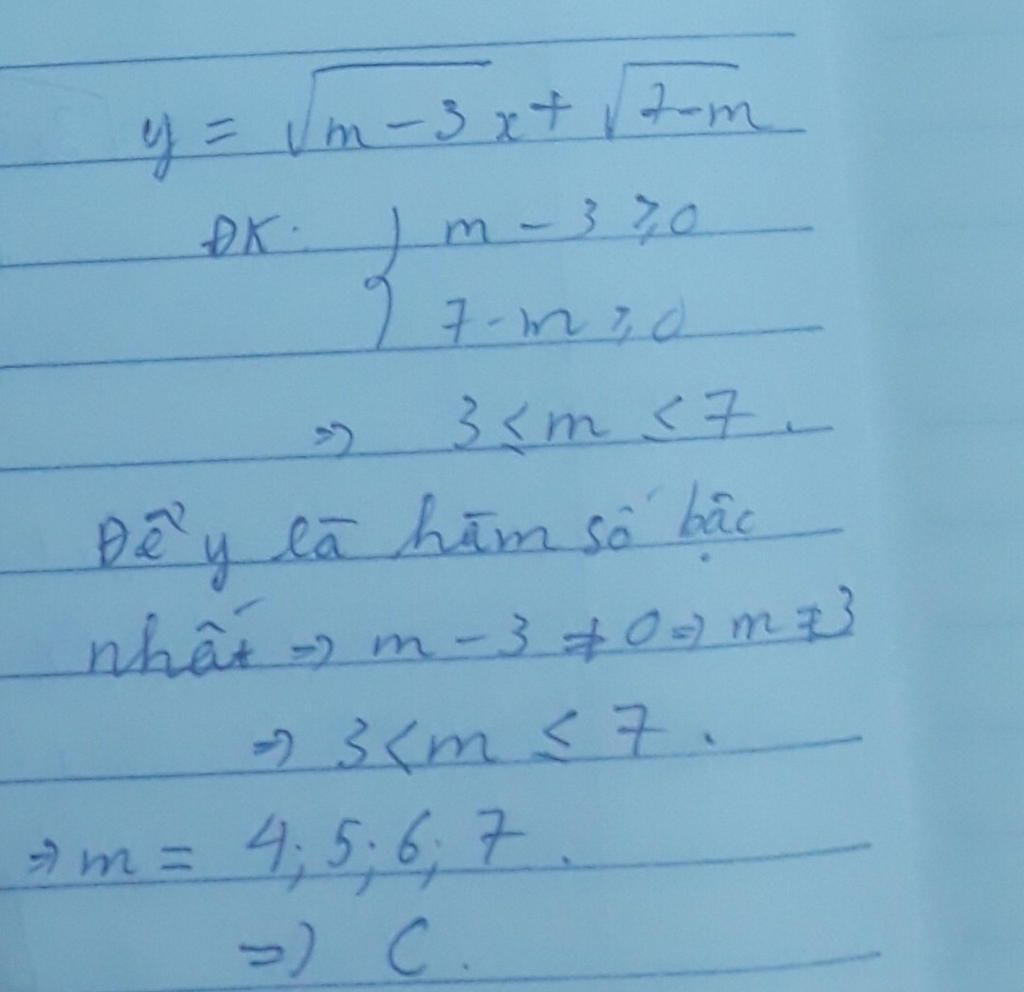 y = √(m-3) x + √(7-m)
ĐK: { m - 3 ≥ 0
7 - m ≥ 0
⇒ 3 ≤ m ≤ 7.
Để y là hàm số bậc
nhất ⇒ m - 3 ≠ 0 ⇒ m ≠ 3
⇒ 3 < m ≤ 7.
⇒ m = 4; 5; 6; 7.
⇒ C.